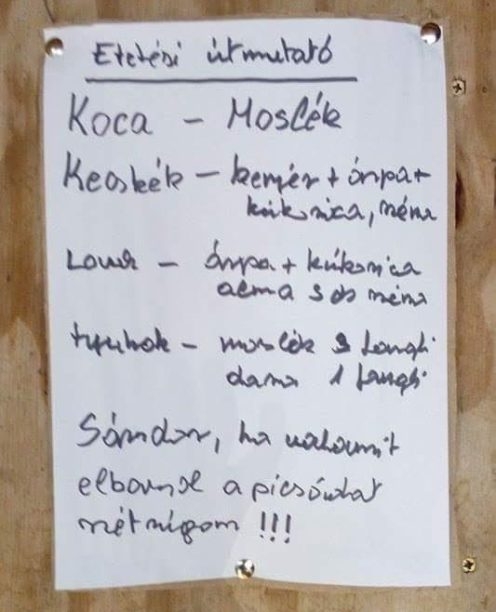 Etetési útmutató
Koca - Moslék
Kecskék - kenyér + árpa +
kukorica, széna
Lovak - árpa + kukorica
alma 3 db széna
tyúkok - moslék 3 fangli
dara 1 fangli
Sándor, ha valamit
elbaszol a picsádat
szétrúgom !!!